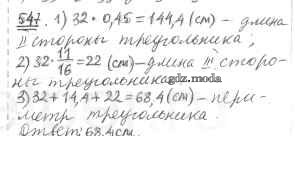 547. 1) 32 · 0,45 = 144,4 (см) – длина
II стороны треугольника;
2) 32 · 11/16 = 22 (см) – длина III сторо-
ны треугольника gdz.moda
3) 32 + 14,4 + 22 = 68,4 (см) – пери-
метр треугольника.
Ответ: 68,4 см.